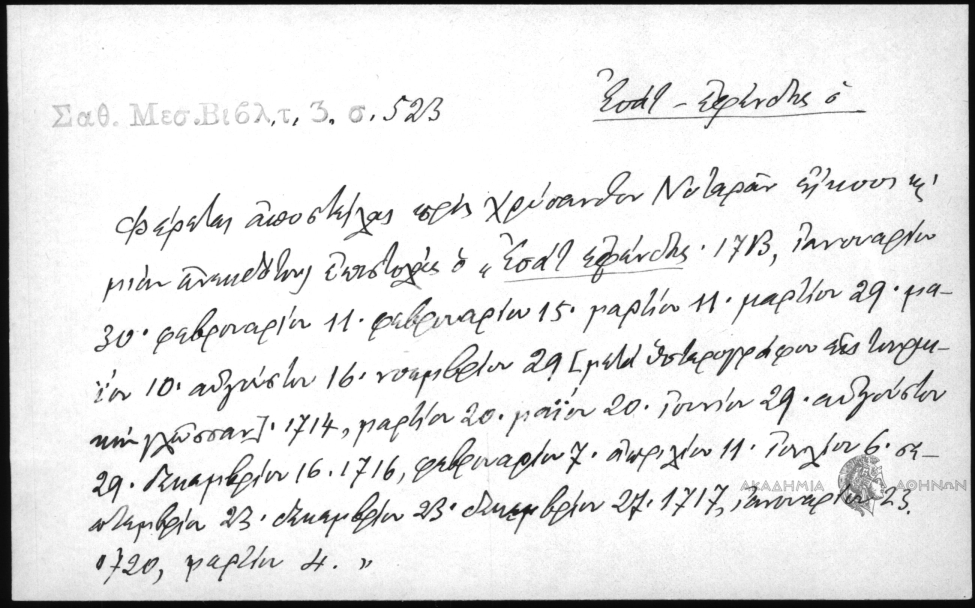 Ἐσάτ – ἐφένδης ὁ
Σαθ. Μεσ. Βιβλ. τ. 3. σ. 523
Φέρεται ἀποστείλας πρὸς Χρύσανθον Νοταρᾶν εἴκοσι κ'
μίαν ἀνεκδότους ἐπιστολὰς ὁ "Ἐσάτ Ἐφένδης· 1713, Ἰανουαρίου
30· φεβρουαρίου 11· φεβρουαρίου 15· μαρτίου 11· μαρτίου 29· μα-
ΐου 10· αὐγούστου 16· νοεμβρίου 29 [μετὰ ὑστερογράφου εἰς τουρκι-
κὴν γλῶσσαν]· 1714, μαρτίου 20· μαΐου 20· ἰουνίου 29· αὐγούστου
29· δεκεμβρίου 16· 1716, φεβρουαρίου 7· ἀπριλίου 11· ἰουλίου 6· σε-
πτεμβρίου 23· δεκεμβρίου 23· δεκεμβρίου 27· 1717, ἰανουαρίου 23.
1720, μαρτίου 4. "
ΑΚΑΔΗΜΙΑ ΑΘΗΝΩΝ